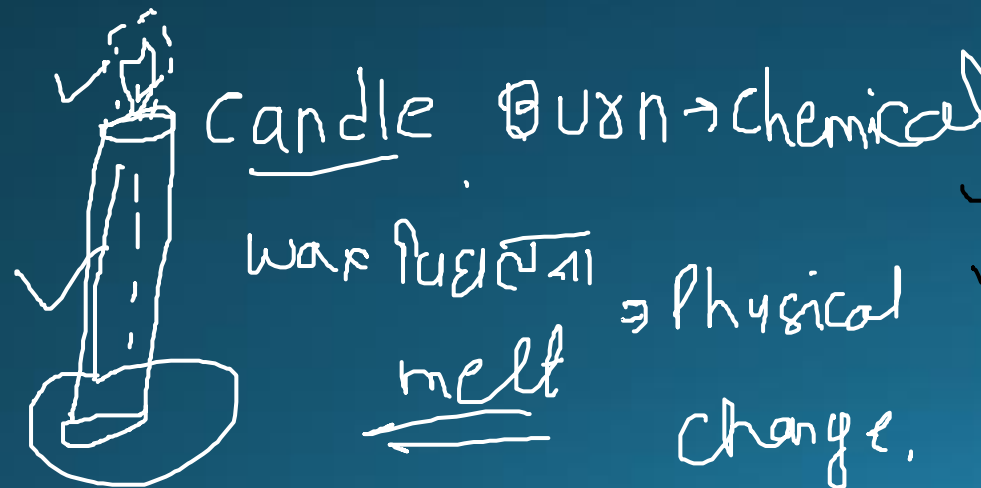 Candle Burn → Chemical
wax पिघलना
melt ⇒ Physical
change.